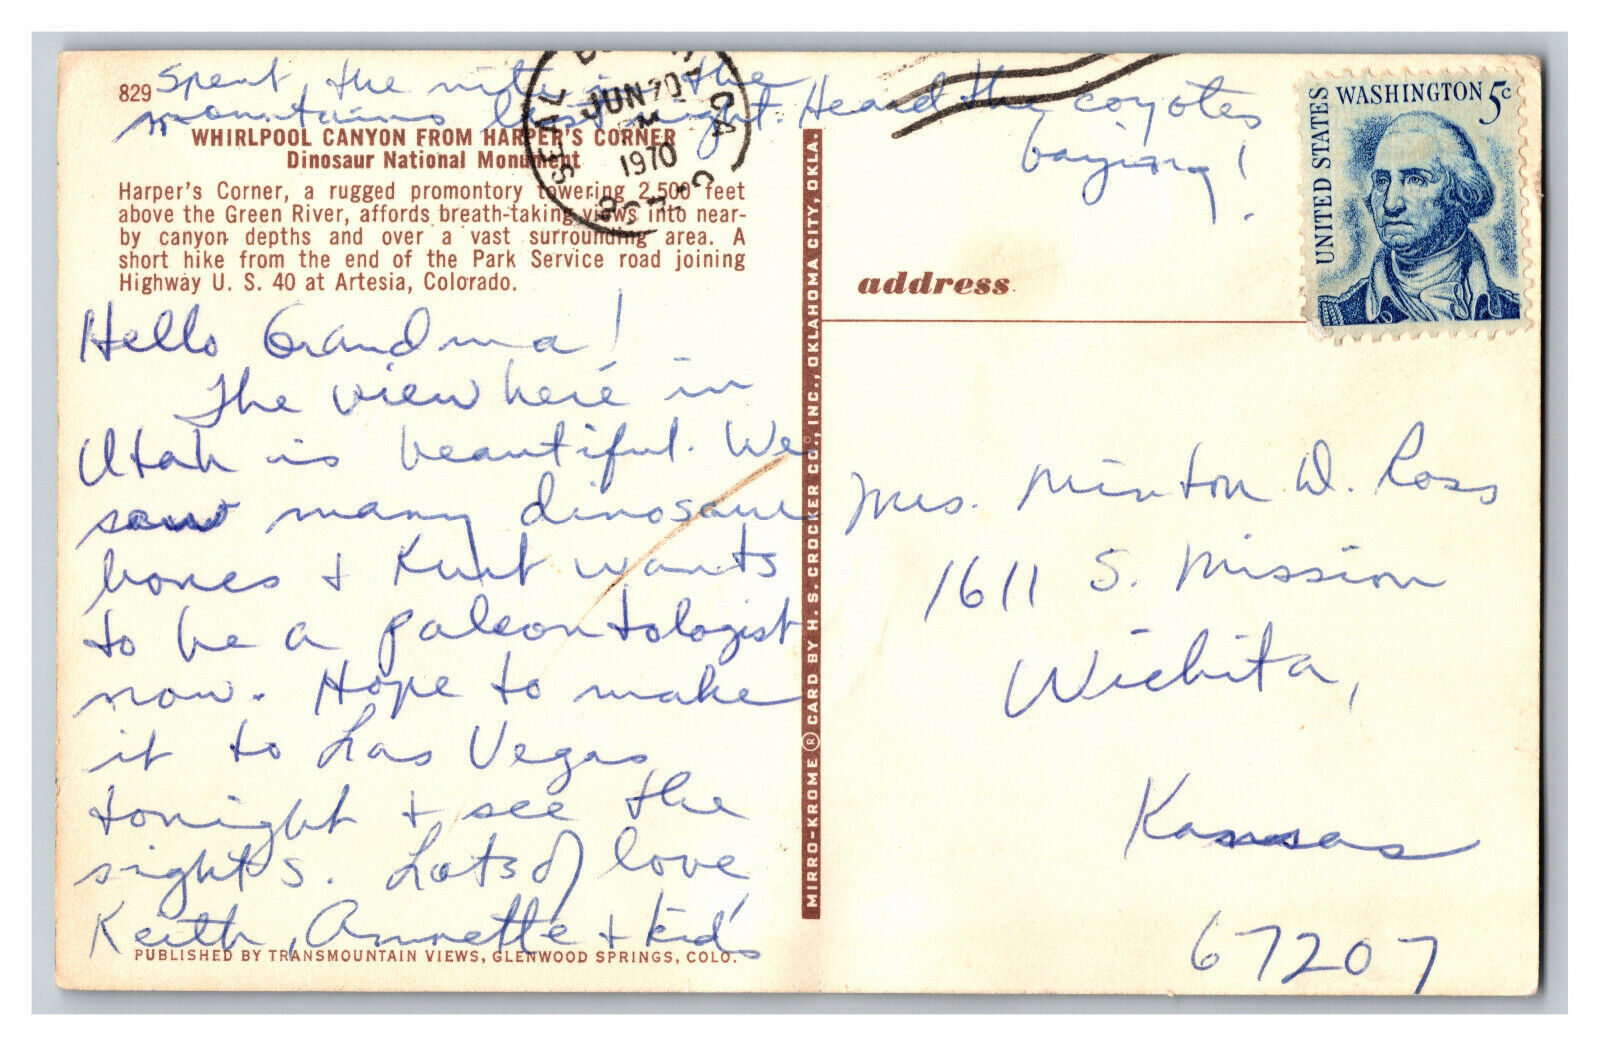 829 Spent the nite in the
mountains last night. Heard the coyotes
baying!
WHIRLPOOL CANYON FROM HARPER'S CORNER
Dinosaur National Monument
Harper's Corner, a rugged promontory towering 2,500 feet
above the Green River, affords breath-taking views into near-
by canyon depths and over a vast surrounding area. A
short hike from the end of the Park Service road joining
Highway U. S. 40 at Artesia, Colorado.
Hello Grandma!
The view here in
Utah is beautiful. We
saw many dinosaur
bones + Kurt wants
to be a paleontologist
now. Hope to make
it to Las Vegas
tonight + see the
sights. Lots of love,
Keith, Annette + kids
PUBLISHED BY TRANSMOUNTAIN VIEWS, GLENWOOD SPRINGS, COLO.
MIRRO-KROME ® CARD BY H. S. CROCKER CO., INC., OKLAHOMA CITY, OKLA.
JUN 20
1970
UNITED STATES
WASHINGTON 5c
address
Mrs. Minton D. Ross
1611 S. Mission
Wichita,
Kansas
67207